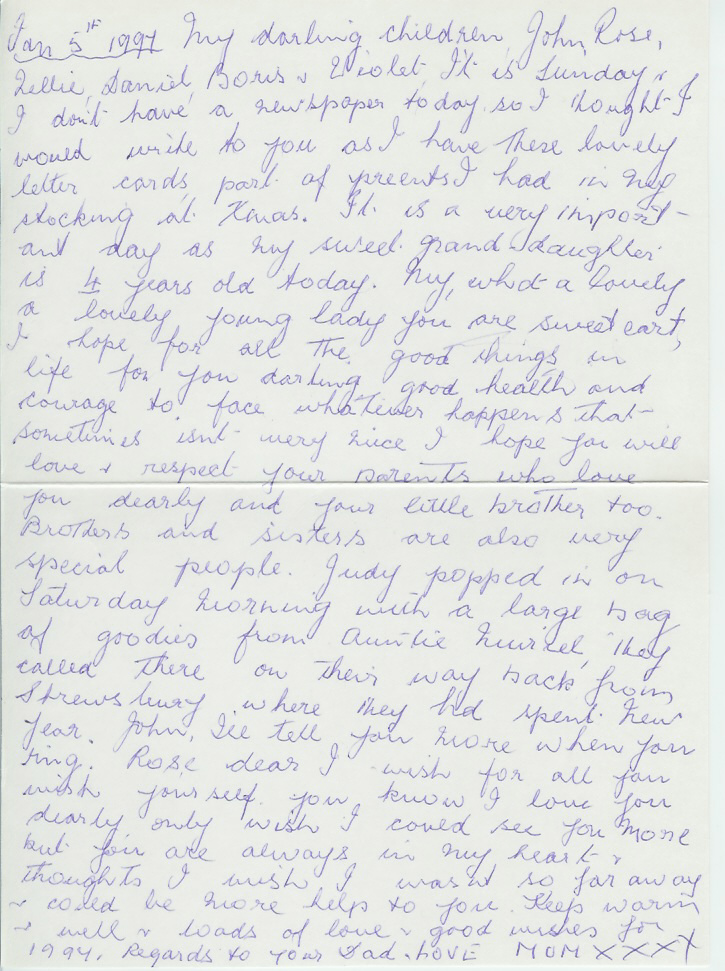 Jan 5th 1997 My darling children, John, Rose,
Nellie, Daniel, Boris & Violet, It is Sunday &
I don't have a newspaper today so I thought I
would write to you as I have these lovely
letter cards, part of preents I had in my
stocking at Xmas. It is a very import-
ant day as my sweet grand-daughter
is 4 years old today. My, what a lovely
a lovely young lady you are sweet eart,
I hope for all the good things in
life for you darling, good health and
courage to face whatever happens that
sometimes isnt very nice I hope you will
love & respect your parents who love
you dearly and your little brother too.
Brothers and sisters are also very
special people. Judy popped in on
Saturday morning with a large bag
of goodies from Auntie Muriel, They
called there on their way back from
Shrewsbury where they hd spent New
Year. John, Ile tell you more when you
ring. Rose dear I wish for all you
wish yourself. you know I love you
dearly only wish I could see you more
but you are always in my heart &
thoughts I wish I wasnt so far away
& could be more help to you. Keep warm
& well & loads of love & good wishes for
1997. Regards to your Dad. LOVE MOM XXXX